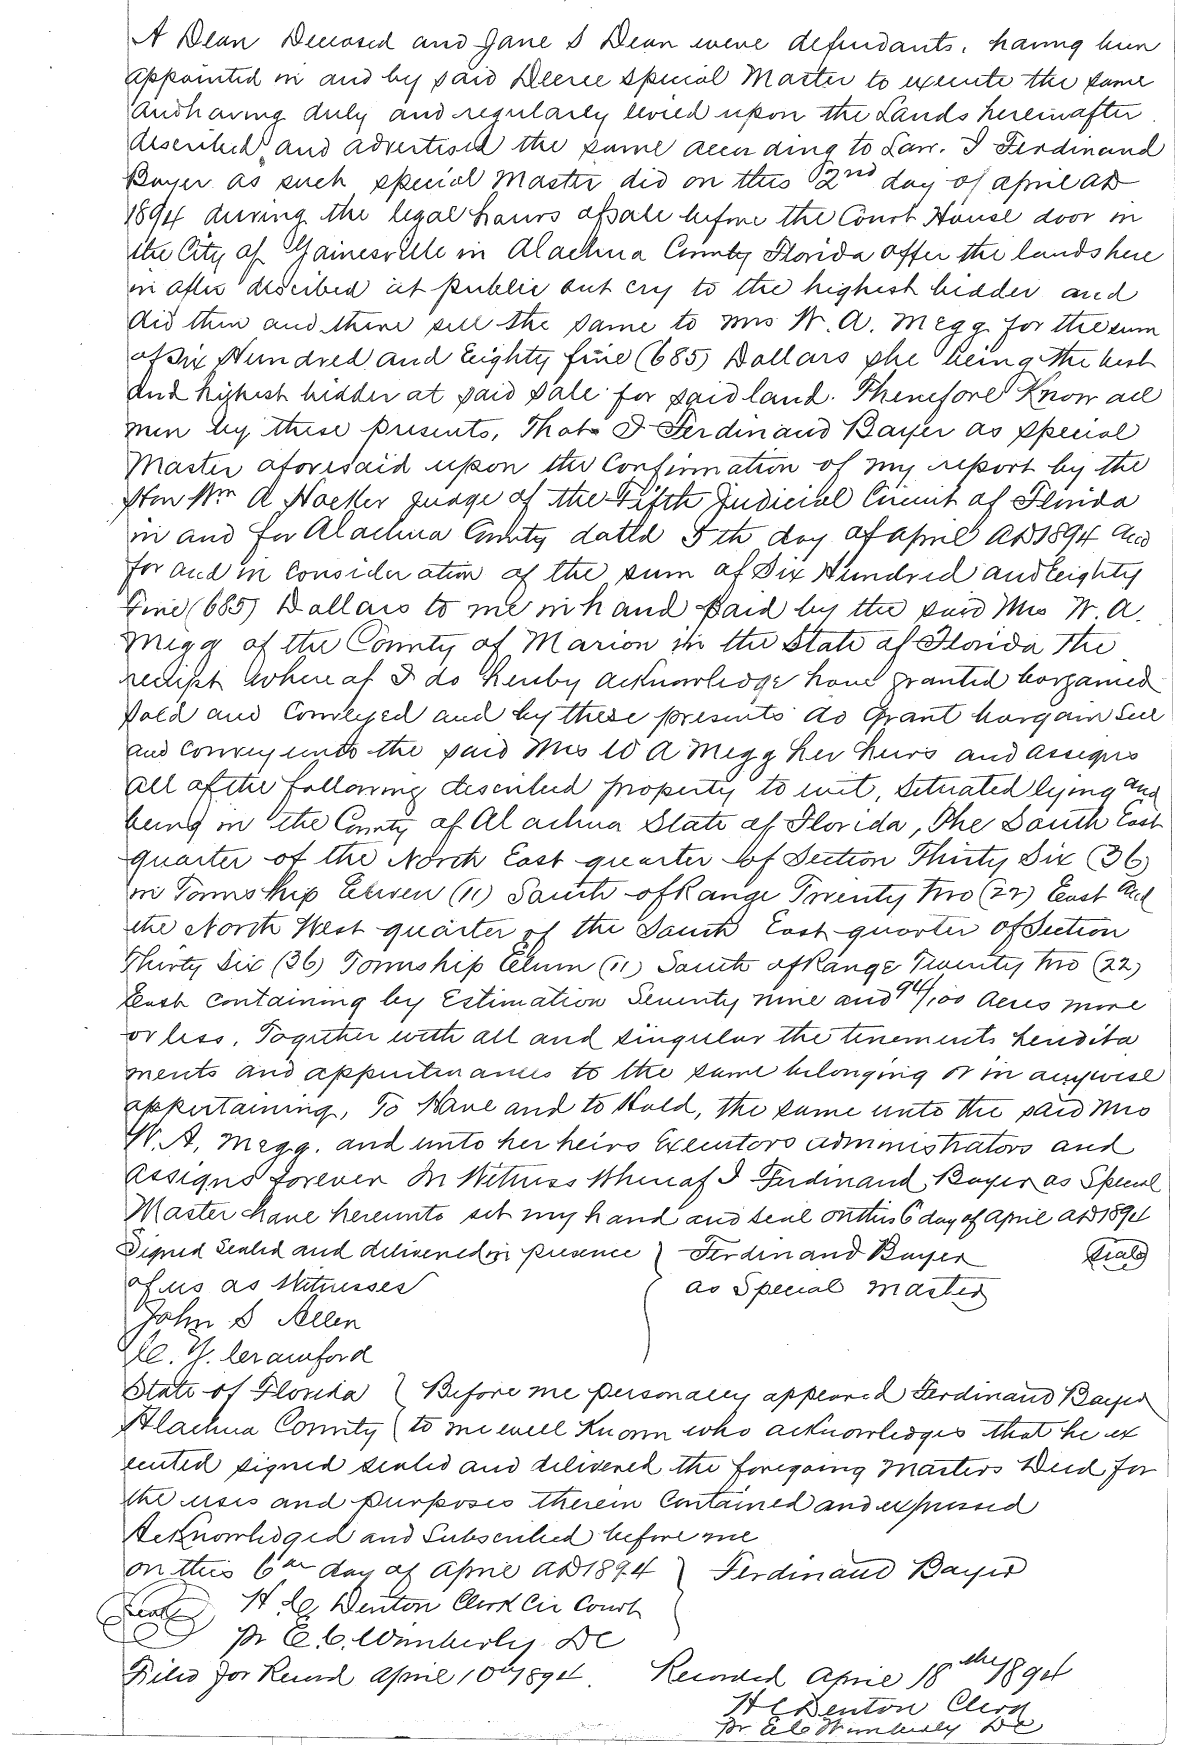 A Dean Deceased and Jane S Dean were defendants, having been
appointed in and by said Decree special Master to execute the same
and having duly and regularly levied upon the Lands hereinafter
described, and advertised the same according to Law. I Ferdinand
Bayer as such special Master did on this 2nd day of april AD
1894 during the legal hours of sale before the Court House door in
the City of Gainesville in Alachua County Florida offer the lands here
in after described at public out cry to the highest bidder and
did then and there sell the same to Mrs W. A. Megg for the sum
of Six Hundred and Eighty five (685) Dollars she being the best
and highest bidder at said sale for said land. Therefore Know all
men by these presents, That I Ferdinand Bayer as special
Master aforesaid upon the Confirmation of my report by the
Hon Wm A Hocker judge of the Fifth Judicial Circuit of Florida
in and for Alachua County dated 5th day of april AD 1894 and
for and in consideration of the sum of Six Hundred and eighty
Five (685) Dollars to me in hand paid by the said Mrs W. A.
Megg of the County of Marion in the State of Florida the
receipt where of I do hereby acknowledge have granted bargained
sold and Conveyed and by these presents do grant bargain Sell
and convey unto the said Mrs W A Megg her heirs and assigns
all of the following described property to wit, Situated lying and
being in the County of Alachua State of Florida, The South East
quarter of the North East quarter of Section Thirty Six (36)
in Township Eleven (11) South of Range Twenty two (22) East and
the North West quarter of the South East quarter of Section
Thirty Six (36) Township Eleven (11) South of Range Twenty two (22)
East containing by Estimation Seventy nine and 94/100 acres more
or less, Together with all and singular the tenements heredita
ments and appurtenances to the same belonging or in anywise
appertaining, To Have and to Hold, the same unto the said Mrs
W. A. Megg. and unto her heirs Executors administrators and
assigns forever In Witness Whereof I Ferdinand Bayer as Special
Master have hereunto set my hand and seal on this 6 day of april AD 1894
Signed Sealed and delivered in presence } Ferdinand Bayer (seal)
of us as Witnesses as Special master
John S Allen
C. Y. Crawford
State of Florida } Before me personally appeared Ferdinand Bayer
Alachua County } to me well Known who acknowledges that he ex
ecuted signed sealed and delivered the foregoing Masters Deed for
the uses and purposes therein Contained and expressed
Acknowledged and Subscribed before me
on this 6th day of april AD 1894 } Ferdinand Bayer
(seal) H. C. Denton Clerk Cir Court
Pr E. C. Wimberly DC
Filed for Record april 10th 1894. Recorded april 18th 1894
H C Denton Clerk
Pr E C Wimberly DC